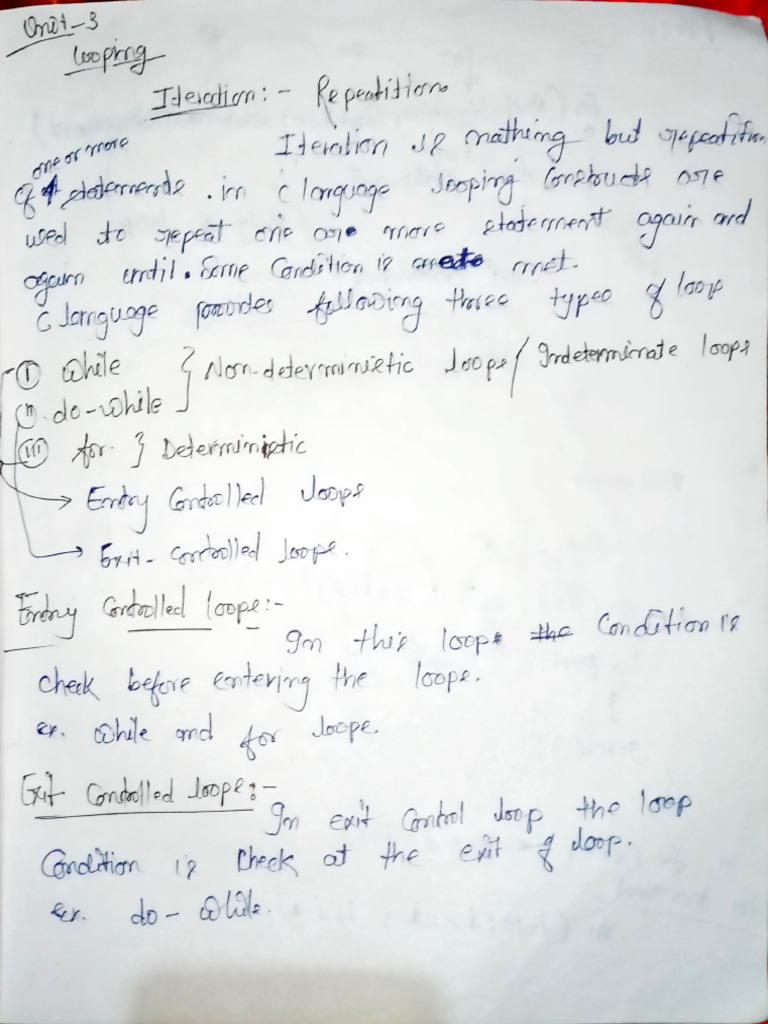 Unit-3
Looping
Iteration:- Repeatition
one or more
Iteration is nathing but repeatition
of statements. in C language looping Constructs are
used to repeat one or more statement again and
again until. Some Condition is met.
C language provides following three types of loop
(I) While } Non-deterministic loops / Indeterminate loops
(II) do-while
(III) for. } Deterministic
→ Entry Controlled loops
→ Exit-controlled loops.
Entry Controlled loops:-
In this loops the Condition is
check before entering the loops.
ex. While and for loops.
Exit Controlled loops:-
In exit Control loop the loop
Condition is check at the exit of loop.
ex. do-while.